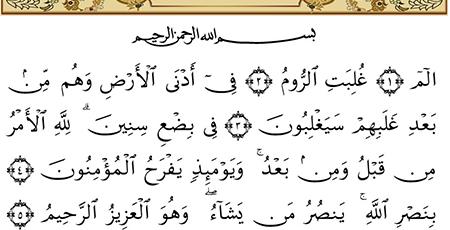 بسم الله الرحمن الرحيم
الٓمٓ ﴿١﴾ غُلِبَتِ ٱلرُّومُ ﴿٢﴾ فِىٓ أَدْنَى ٱلْأَرْضِ وَهُم مِّنۢ
بَعْدِ غَلَبِهِمْ سَيَغْلِبُونَ ﴿٣﴾ فِى بِضْعِ سِنِينَ ۗ لِلَّهِ ٱلْأَمْرُ
مِن قَبْلُ وَمِنۢ بَعْدُ ۚ وَيَوْمَئِذٍ يَفْرَحُ ٱلْمُؤْمِنُونَ ﴿٤﴾
بِنَصْرِ ٱللَّهِ ۚ يَنصُرُ مَن يَشَآءُ ۖ وَهُوَ ٱلْعَزِيزُ ٱلرَّحِيمُ ﴿٥﴾